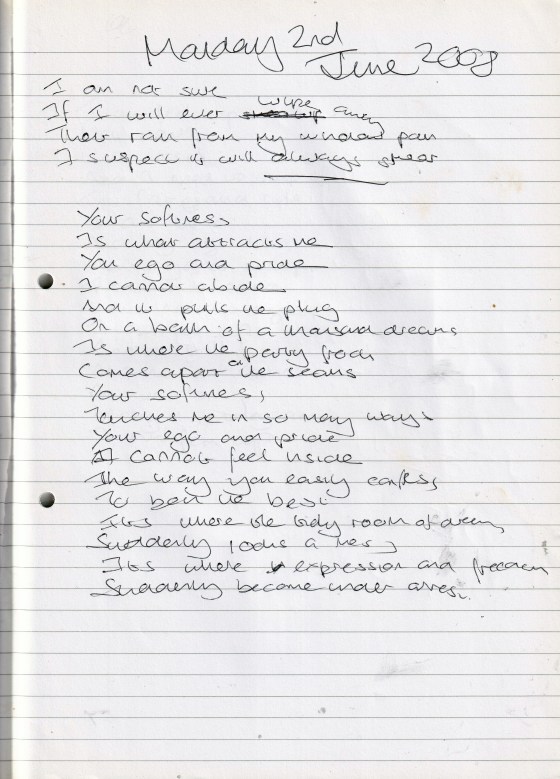 Monday 2nd
June 2008
I am not sure
If I will ever wipe away
That rain from my window pain
I suspect it will always smear
Your softness,
Is what attracts me
You ego and pride
I cannot abide
And it pulls the plug
On a bath of a thousand dreams
Is where the party frock
Comes apart at the seams
Your softness,
Touches me in so many ways
Your ego and pride
I cannot feel inside
The way you easily confess,
To being the best
Its where the tidy room of dreams
Suddenly looks a mess,
Its where expression and freedom
Suddenly become under arrest.